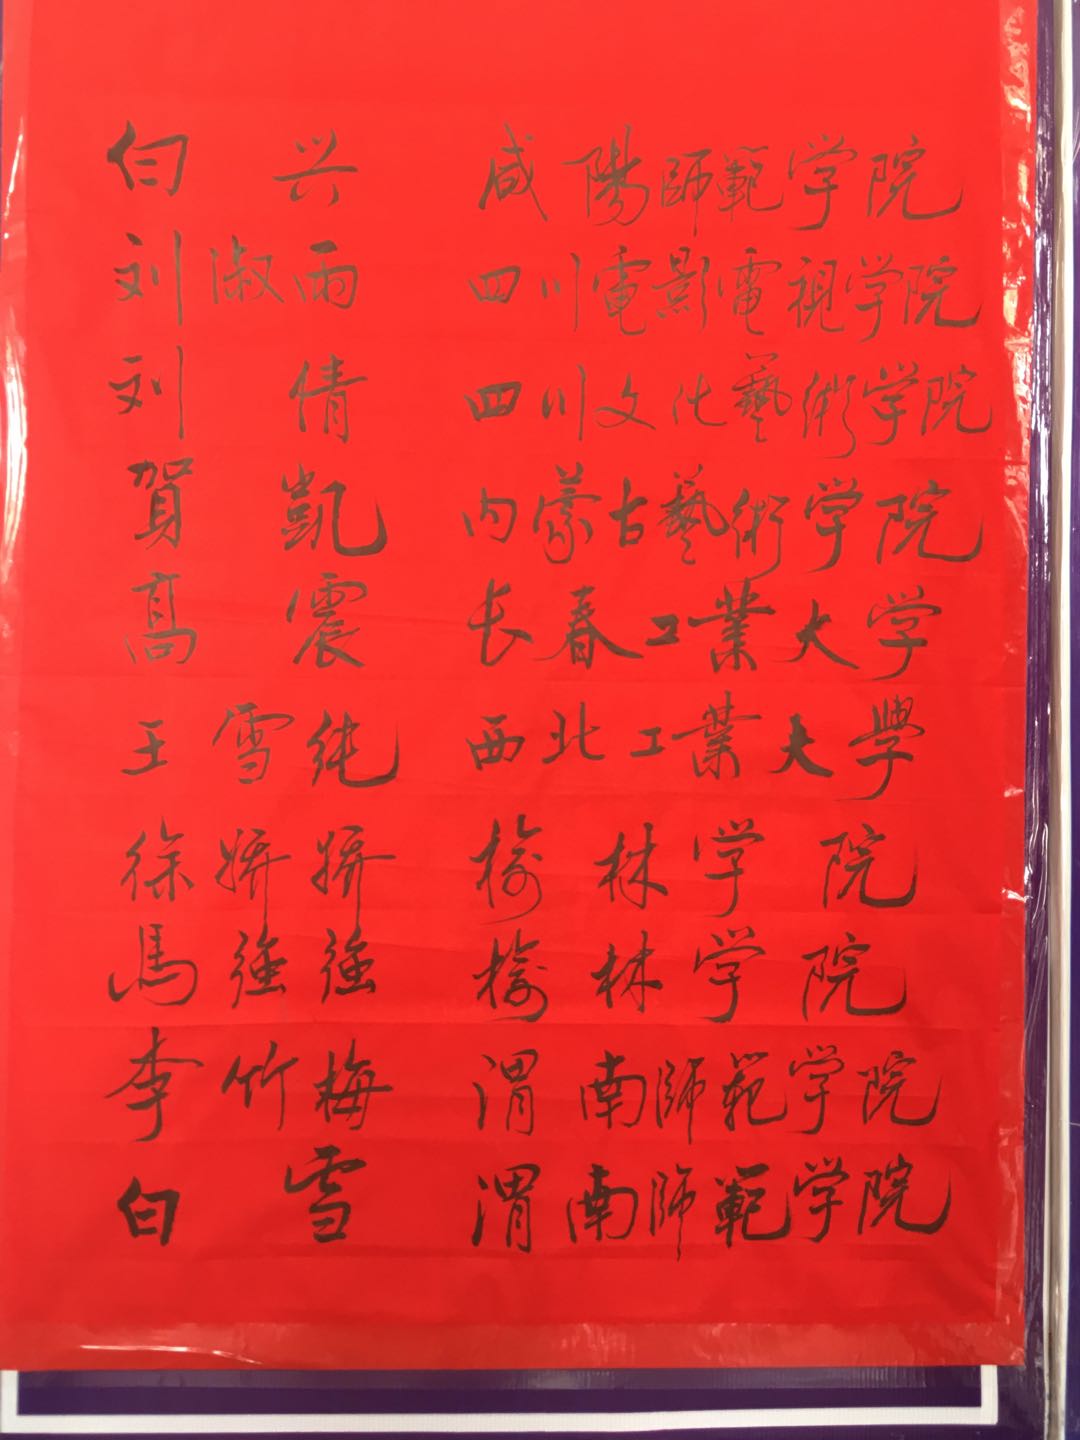 白兴 咸陽師範学院
刘淑雨 四川電影電視学院
刘倩 四川文化藝術学院
賀凱 内蒙古藝術学院
髙震 长春工業大学
王雪纯 西北工業大學
徐妍妍 榆林学院
馬强强 榆林学院
李竹梅 渭南師範学院
白雪 渭南師範学院